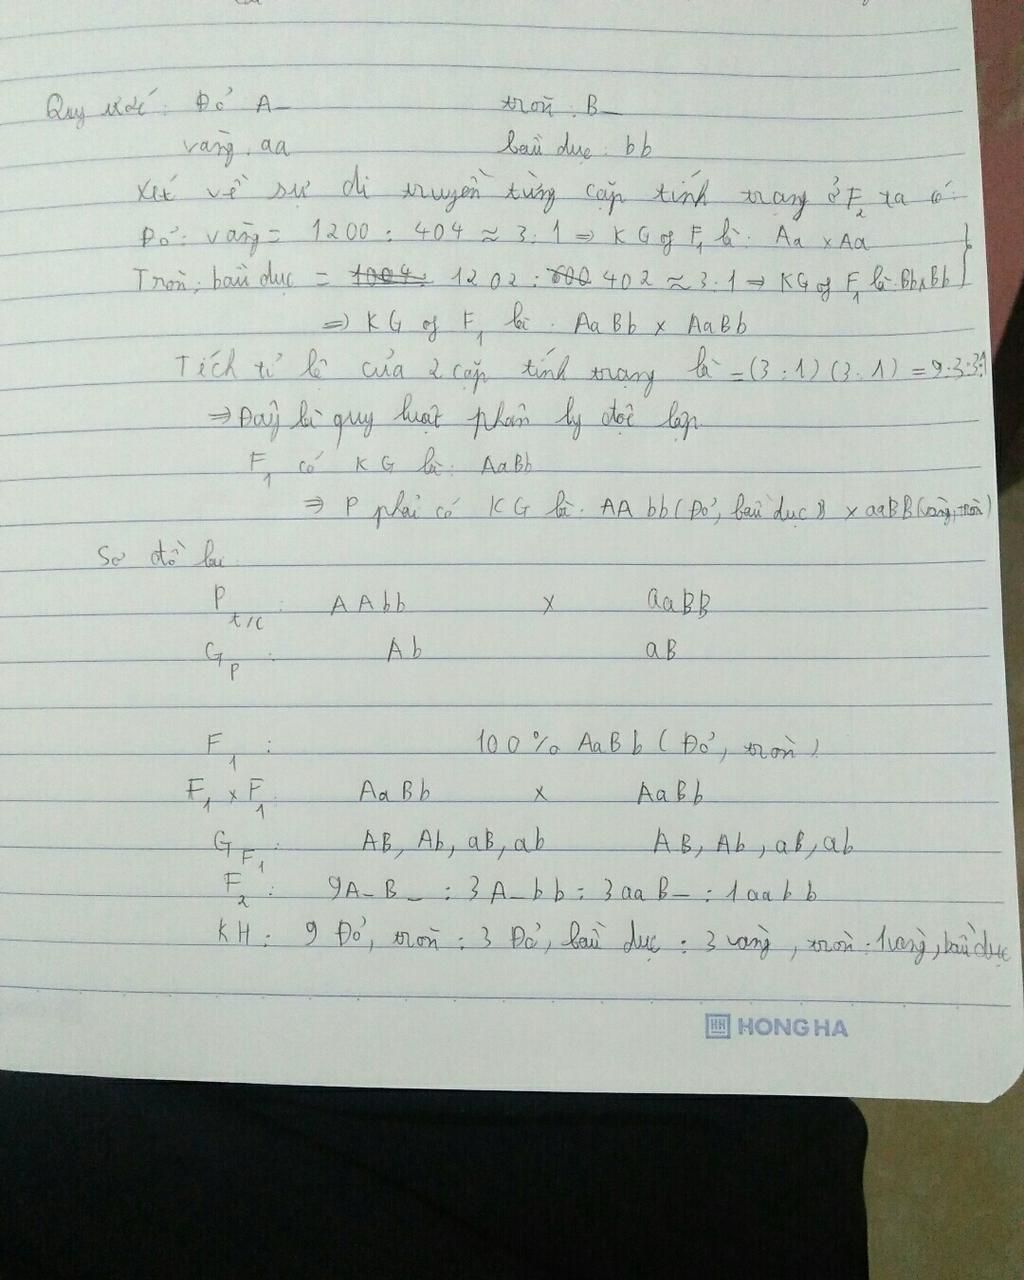 Quy ước: Đỏ A_ tròn: B_
vàng: aa bầu dục: bb
Xét về sự di truyền từng cặp tính trạng ở F2 ta có:
Đỏ: vàng = 1200 : 404 ≈ 3:1 ⇒ KG of F1 là: Aa x Aa
Tròn: bầu dục = 1202 : 402 ≈ 3:1 ⇒ KG of F1 là Bb x Bb
⇒ KG of F1 là: AaBb x AaBb
Tích tỉ lệ của 2 cặp tính trạng là = (3:1)(3:1) = 9:3:3:1
⇒ Đây là quy luật phân ly độc lập
F1 có KG là: AaBb
⇒ P phải có KG là: AAbb (Đỏ, bầu dục) x aaBB (vàng, tròn)
Sơ đồ lai
P t/c : AAbb x aaBB
GP : Ab aB
F1 : 100% AaBb (Đỏ, tròn)
F1 x F1 : AaBb x AaBb
GF1 : AB, Ab, aB, ab AB, Ab, aB, ab
F2 : 9A_B_ : 3A_bb : 3aaB_ : 1aabb
KH: 9 Đỏ, tròn : 3 Đỏ, bầu dục : 3 vàng, tròn : 1 vàng, bầu dục
HH HONG HA